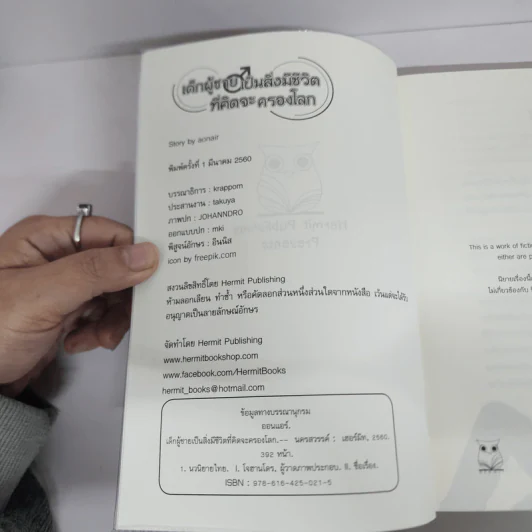 เด็กผู้ชายเป็นสิ่งมีชีวิต
ที่คิดจะครองโลก
Story by aonair
พิมพ์ครั้งที่ 1 มีนาคม 2560
บรรณาธิการ : krappom
ประสานงาน : takuya
ภาพปก : JOHANNDRO
ออกแบบปก : mki
พิสูจน์อักษร : อินนิส
icon by freepik.com
สงวนลิขสิทธิ์โดย Hermit Publishing
ห้ามลอกเลียน ทำซ้ำ หรือคัดลอกส่วนหนึ่งส่วนใดจากหนังสือ เว้นแต่จะได้รับ
อนุญาตเป็นลายลักษณ์อักษร
จัดทำโดย Hermit Publishing
www.hermitbookshop.com
www.facebook.com/HermitBooks
hermit_books@hotmail.com
ข้อมูลทางบรรณานุกรม
ออนแอร์.
เด็กผู้ชายเป็นสิ่งมีชีวิตที่คิดจะครองโลก.-- นครสวรรค์ : เฮอร์มิท, 2560.
392 หน้า.
1. นวนิยายไทย. I. โจฮานโดร, ผู้วาดภาพประกอบ. II. ชื่อเรื่อง.
ISBN : 978-616-425-021-5
This is a work of fic
either are p
นิยายเรื่องนี้
ไม่เกี่ยวข้องกับ